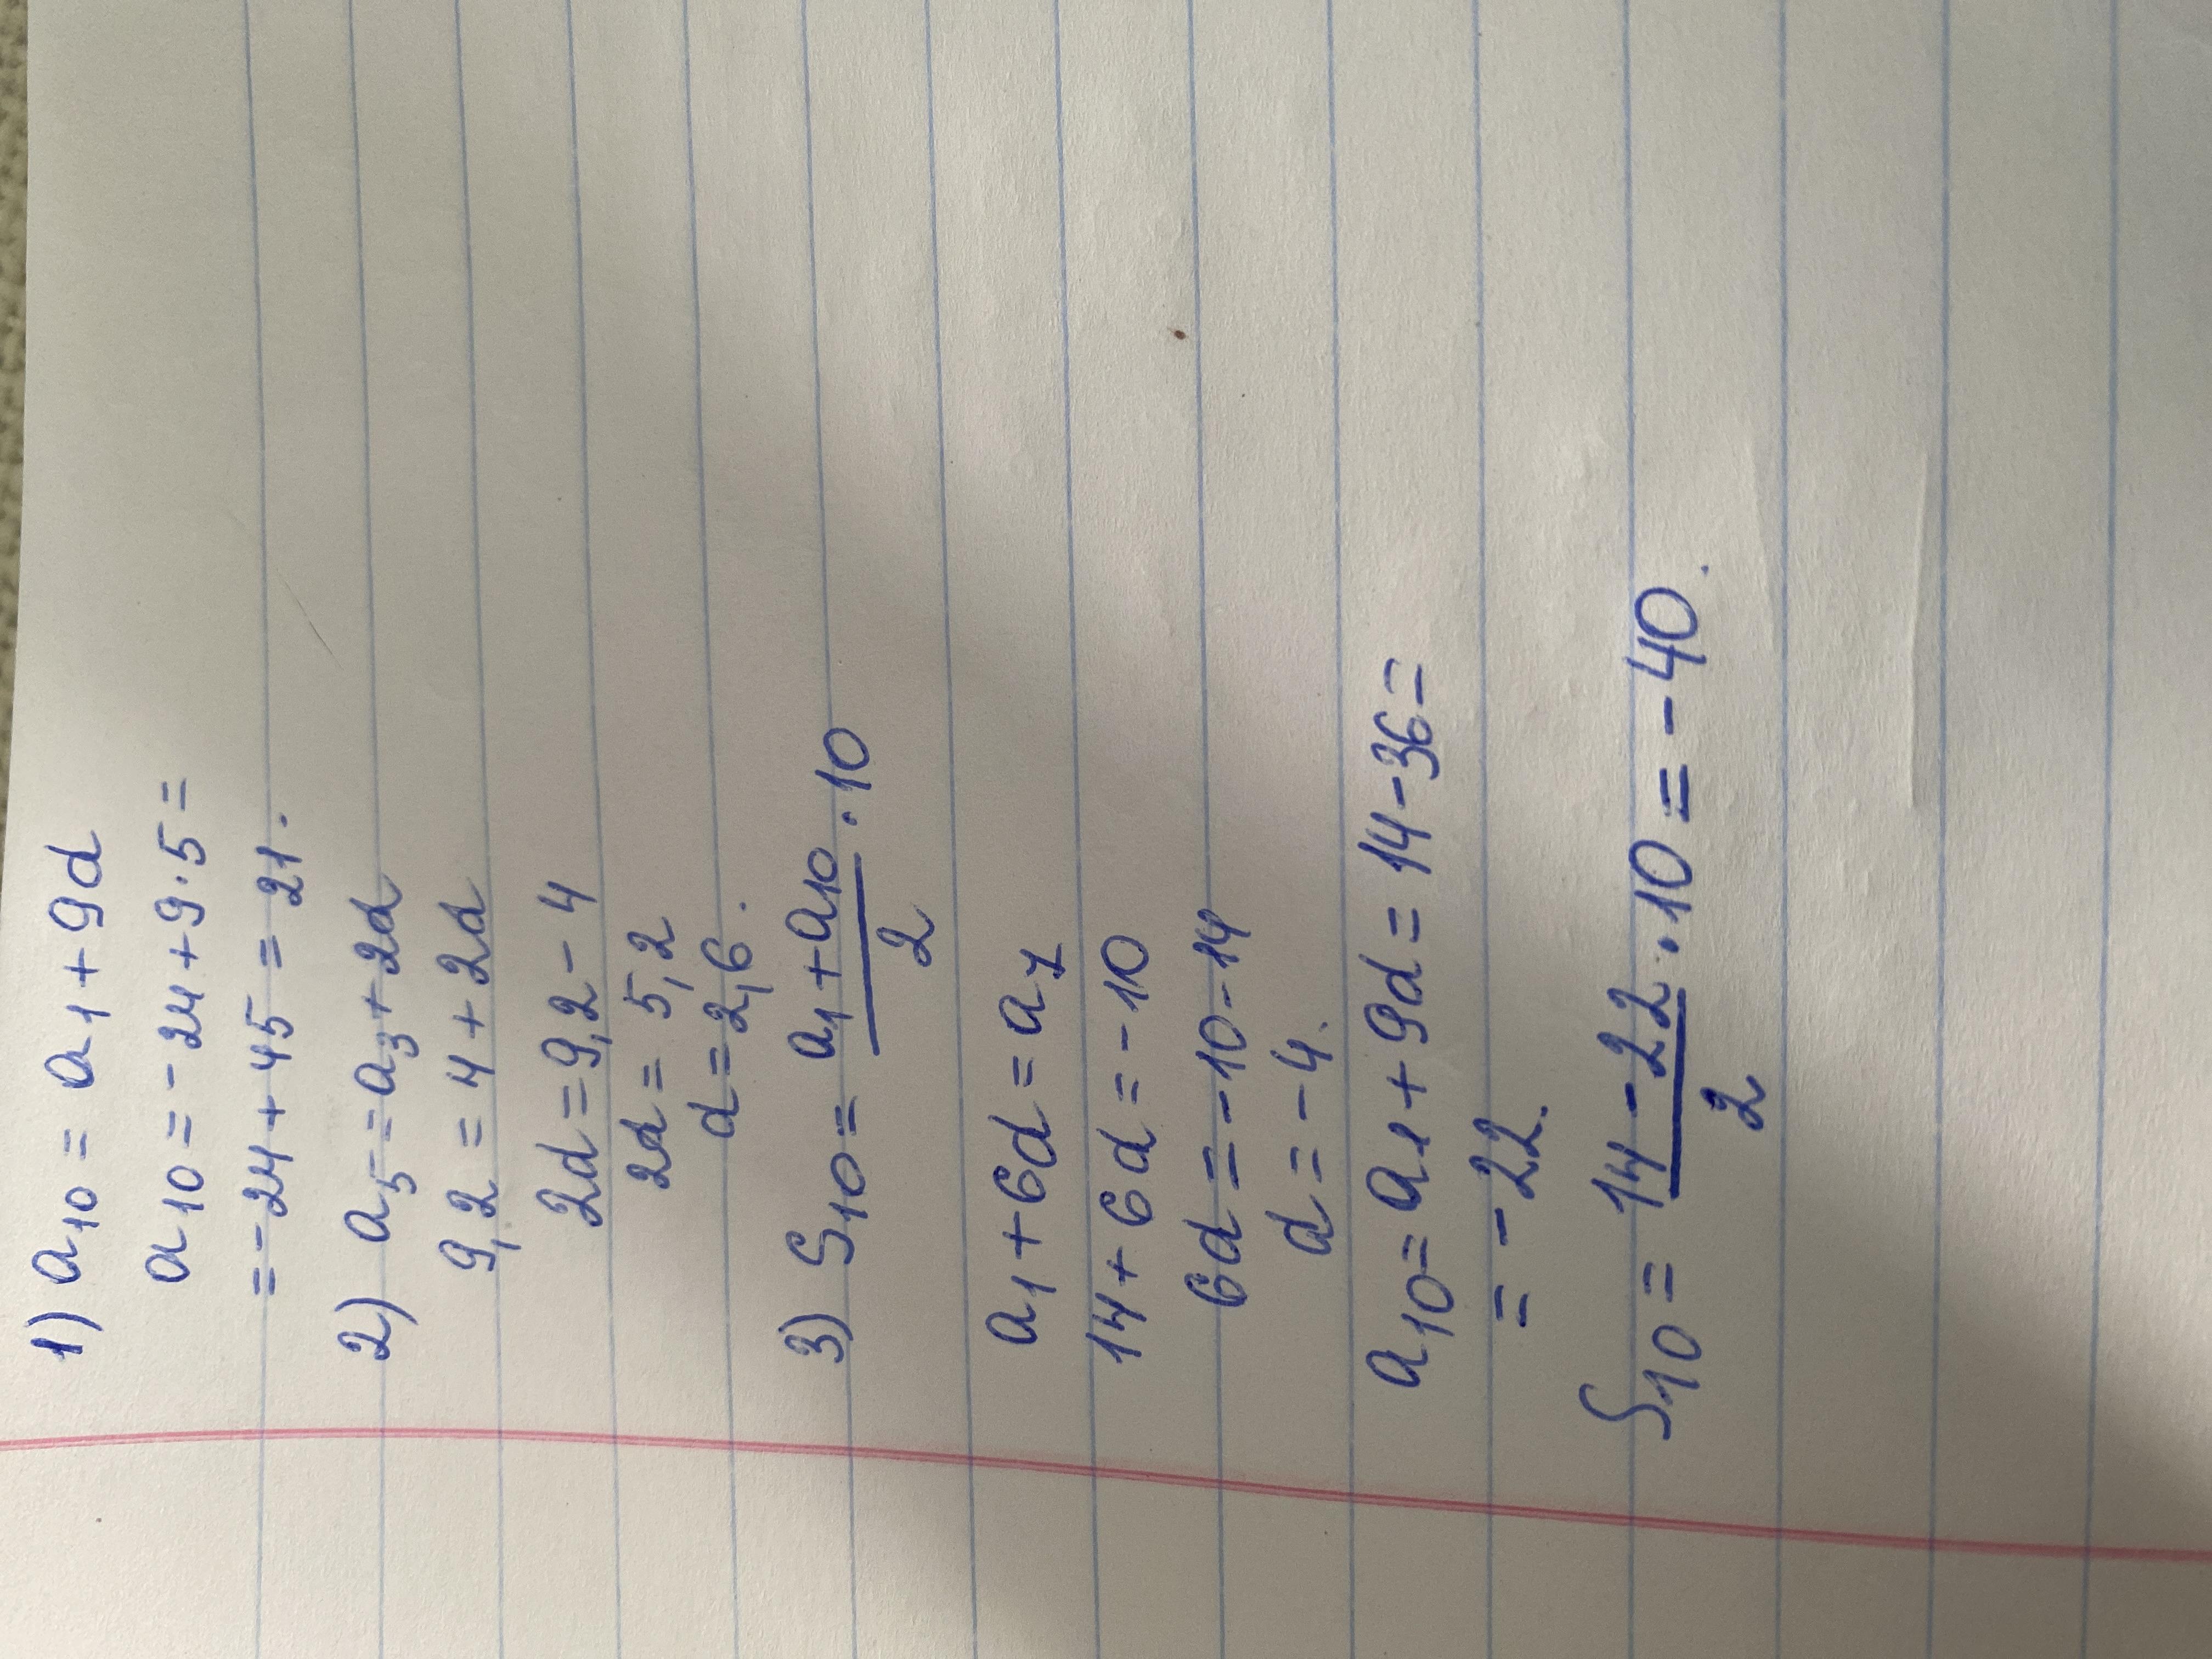 1) a₁₀ = a₁ + 9d
a₁₀ = -24 + 9·5 =
= -24 + 45 = 21.
2) a₅ = a₃ + 2d
9,2 = 4 + 2d
2d = 9,2 - 4
2d = 5,2
d = 2,6.
3) S₁₀ = (a₁ + a₁₀)/2 · 10
a₁ + 6d = a₇
14 + 6d = -10
6d = -10 - 14
d = -4.
a₁₀ = a₁ + 9d = 14 - 36 =
= -22.
S₁₀ = (14 - 22)/2 · 10 = -40.